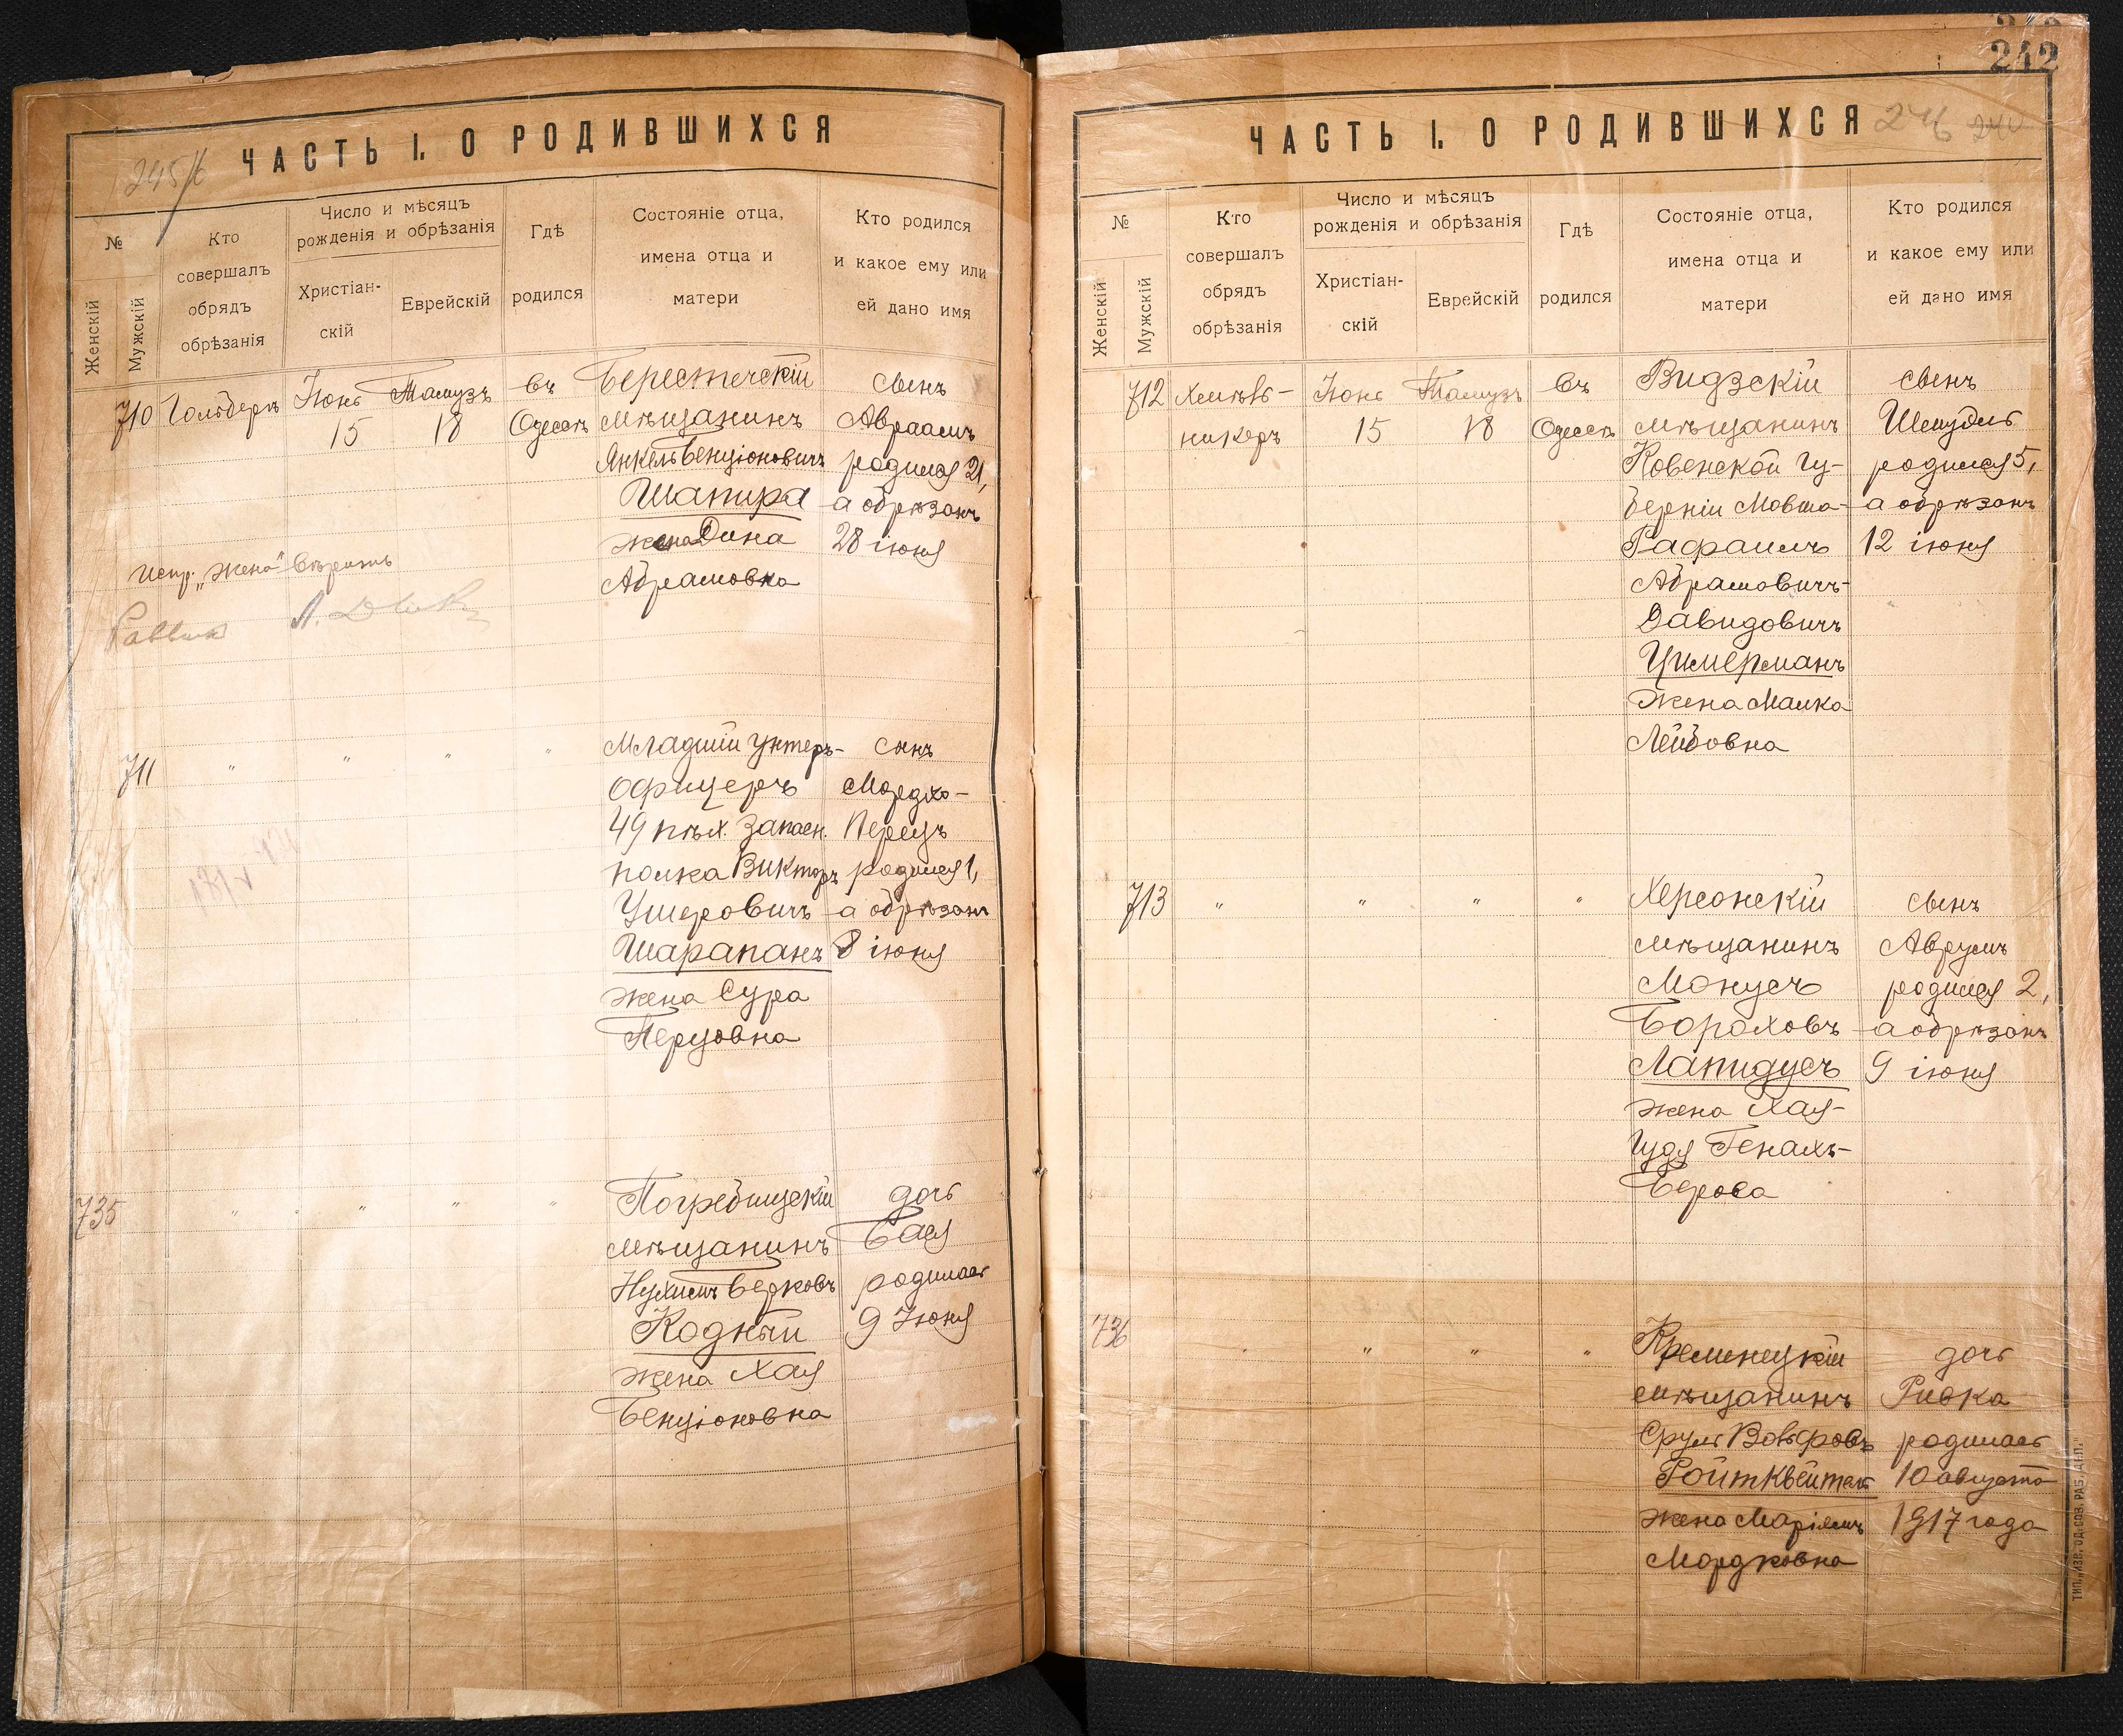 ЧАСТЬ I. О РОДИВШИХСЯ
245/б
№
Женскій
Мужскій
Кто
совершалъ
обрядъ
обрѣзанія
Число и мѣсяцъ
рожденія и обрѣзанія
Христіан-
скій
Еврейскій
Гдѣ
родился
Состояніе отца,
имена отца и
матери
Кто родился
и какое ему или
ей дано имя
710 Гольберъ Іюнь Тамузъ въ Берестечскій сынъ
15 18 Одессѣ мѣщанинъ Авраамъ
Янкель Бенціоновичъ родился 21,
Шапира а обрѣзанъ
жена Дина 28 іюня
Абрамовна
Испр. „жена" вѣрить
Раввин
711 " " " " Младшій унтеръ- сынъ
офицеръ Мордко-
49 пѣх. запасн. Перецъ
полка Викторъ родился 1,
Ушеровичъ а обрѣзанъ
Шарапанъ 8 іюня
жена Сура
Перцовна
735 " " " " Погребищскій дочь
мѣщанинъ Бася
Нухимъ Берковъ родилась
Кодный 9 Іюня
жена Хая
Бенціоновна
242
ЧАСТЬ I. О РОДИВШИХСЯ 246 240
№
Женскій
Мужскій
Кто
совершалъ
обрядъ
обрѣзанія
Число и мѣсяцъ
рожденія и обрѣзанія
Христіан-
скій
Еврейскій
Гдѣ
родился
Состояніе отца,
имена отца и
матери
Кто родился
и какое ему или
ей дано имя
712 Хмѣль- Іюнь Тамузъ въ Видзскій сынъ
никеръ 15 18 Одессѣ мѣщанинъ Шмуль
Ковенской гу- родился 5,
берніи Мовша- а обрѣзанъ
Рафаилъ 12 іюня
Абрамовичъ-
Давидовичъ
Цимерманъ
жена Малка
Лейбовна
713 " " " " Херсонскій сынъ
мѣщанинъ Аврумъ
Монусъ родился 2,
Бороховъ а обрѣзанъ
Лапидусъ 9 іюня
жена Хая-
Гудя Генахъ-
Берова
736 " " " " Кременецкій дочь
мѣщанинъ Ривка
Сруль Вольфовъ родилась
Ройтквейтель 10 августа
жена Маріямъ 1917 года
Мордковна
ТИП. „ИЗВ. ОД. СОВ. РАБ. ДЕП."